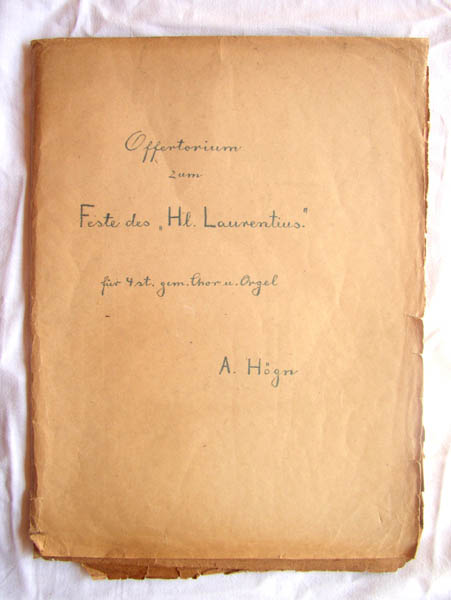 Offertorium
zum
Feste des „Hl. Laurentius."
für 4 st. gem. Chor u. Orgel
A. Högn